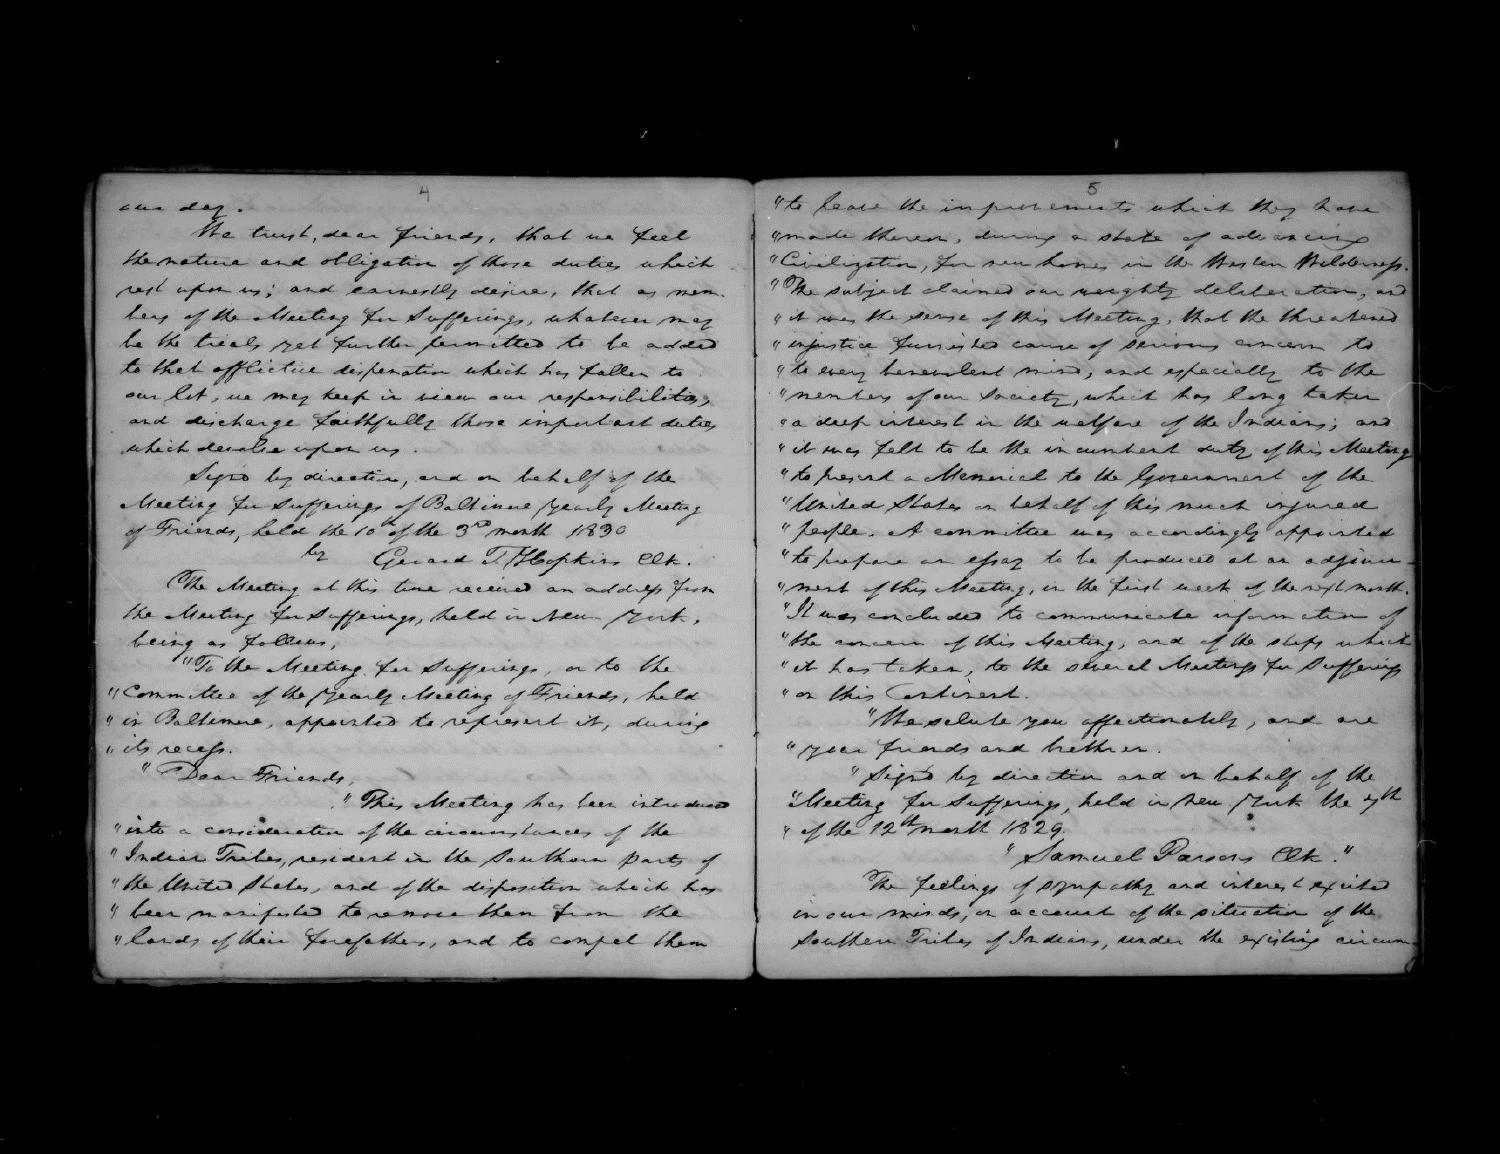 4
our day.
We trust, dear friends, that we feel
the nature and obligation of those duties which
rest upon us; and earnestly desire, that as mem-
bers of the Meeting for Sufferings, whatever may
be the trials yet further permitted to be added
to that afflictive dispensation which has fallen to
our lot, we may keep in view our responsibilities,
and discharge faithfully those important duties
which devolve upon us.
Signd by direction, and on behalf of the
Meeting for Sufferings of Baltimore Yearly Meeting
of Friends, held the 10th of the 3rd month 1830
by Gerard T. Hopkins Clk.
The Meeting at this time received an address from
the Meeting for Sufferings, held in New York,
being as follows,
"To the Meeting for Sufferings, or to the
"Committee of the Yearly Meeting of Friends, held
"in Baltimore, appointed to represent it, during
"its recess.
"Dear Friends,
"This Meeting has been introduced
"into a consideration of the circumstances of the
"Indian Tribes, resident in the Southern parts of
"the United States, and of the disposition which has
"been manifested to remove them from the
"lands of their forefathers, and to compel them
5
"to leave the improvements which they have
"made thereon, during a state of advancing
"Civilization, for new homes in the Western Wilderness.
"The subject claimed our weighty deliberation, and
"it was the sense of this Meeting, that the threatened
"injustice furnished cause of serious concern to
"to every benevolent mind, and especially to the
"members of our Society, which has long taken
"a deep interest in the welfare of the Indians; and
"it was felt to be the incumbent duty of this Meeting
"to present a Memorial to the Government of the
"United States on behalf of this much injured
"people. A committee was accordingly appointed
"to prepare an essay to be produced at an adjourn-
"ment of this Meeting, in the first week of the next month.
"It was concluded to communicate information of
"the concern of this Meeting, and of the steps which
"it has taken, to the several Meetings for Sufferings
"on this Continent.
"We salute you affectionately, and are
"your friends and brethren.
"Signd by direction and on behalf of the
"Meeting for Sufferings, held in New York the 7th
"of the 12th month 1829.
"Samuel Parsons Clk."
The feelings of sympathy and interest excited
in our minds, on account of the situation of the
Southern Tribes of Indians, under the existing circum-